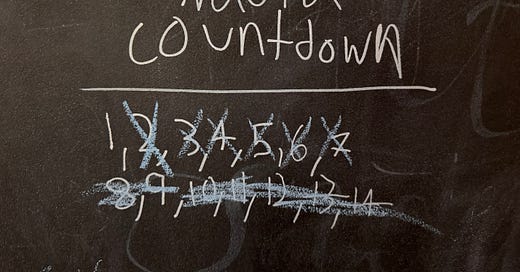 countdown
1,2,3,4,5,6,7
8,9,10,11,12,13,14